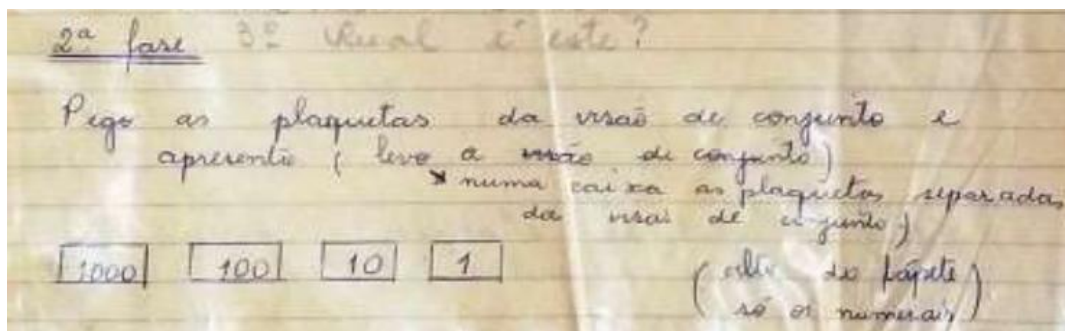 2ª fase 3º Qual é este?
Pego as plaquetas da visão de conjunto e
apresento ( levo a visão de conjunto )
numa caixa as plaquetas separadas
da visão de conjunto )
1000 100 10 1
( do tapete
só os numerais )